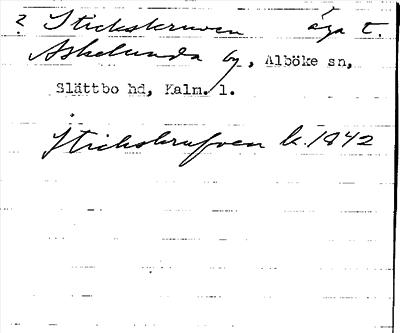 ? Stickskruven äga t.
Askelunda by, Alböke sn,
Slättbo hd, Kalm. l.
Stickskrufven k. 1842